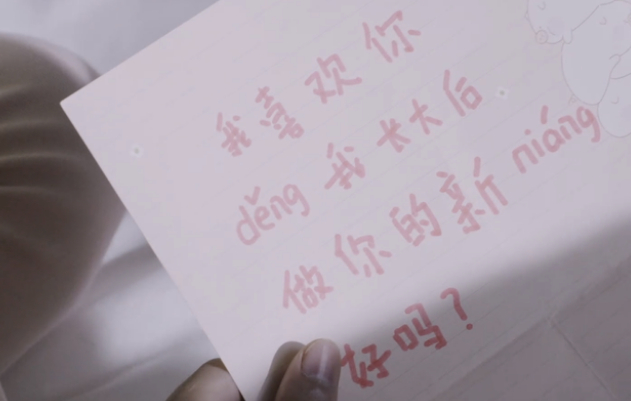 我喜欢你
děng我长大后
做你的新niáng
好吗？